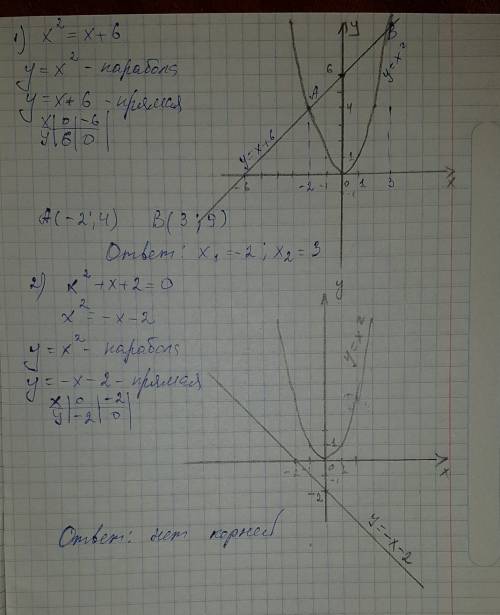 1) x² = x+6
y = x² - парабола
y = x+6 - прямая
x | 0 | -6
y | 6 | 0
y
B
6
y=x²
A
4
y=x+6
1
-6 -2 -1 0 1 3 x
A(-2;4) B(3;9)
Ответ: x₁=-2; x₂=3
2) x²+x+2=0
x² = -x-2
y = x² - парабола
y = -x-2 - прямая
x | 0 | -2
y | -2 | 0
y
y=x²
1
-2 0 1 x
-1
-2
y=-x-2
Ответ: нет корней